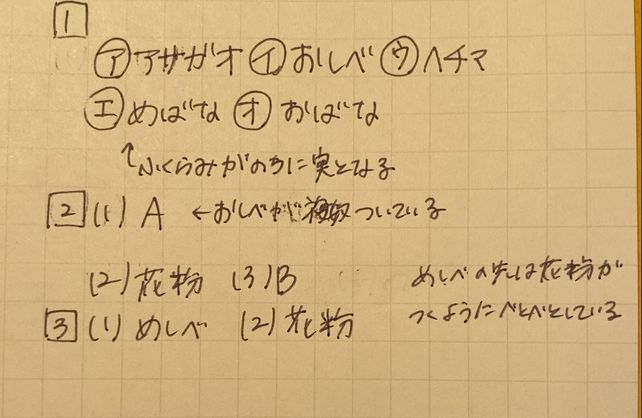 1
㋐アサガオ ㋑おしべ ㋒ヘチマ
㋓めばな ㋔おばな
↑ふくらみがのちに実となる
2 (1) A ←おしべが複数ついている
(2) 花粉 (3) B
めしべの先は花粉が
つくようにべとべとしている
3 (1) めしべ (2) 花粉